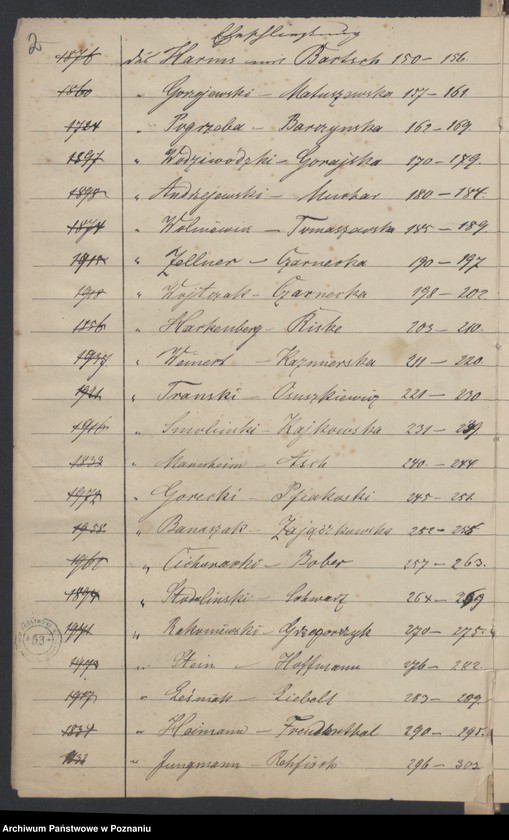 2 Eheschließung
1876 des Harms mit Bartsch 150 – 156
1860 " Gorzejewski – Matuszewska 157 – 161
1724 " Pogrzeba – Barczynska 162 – 169
1897 " Wodziwodzki – Gorajska 170 – 179.
1898 " Andrzejewski – Muchar 180 – 184.
1874 " Woliniewicz – Tomaszewska 185 – 189
" Zellner – Czarnecka 190 – 197
" Wojtczak – Czarnecka 198 – 202
1856 " Harkenberg – Riske 203 – 210.
" Weinert – Kazmierska 211 – 220
" Transki – Osuszkiewicz 221 – 230
" Smolinski – Zajkowska 231 – 239
1833 " Mannheim – Asch 240. – 244
1972 " Gorecki – 245 – 251
1958 " Banaszak – Zajączkowska 252 – 256
1961 " Cichanarki – Bober 257 – 263.
1894 " Stadlinski – Schwarz 264 – 269
1971 " Kokoniewski – Grzegorczyk 270 – 275.
1973 " Stein – Hoffmann 276 – 282
1977 " Leśniak – Liebelt 283 – 289
1834 " Heimann – Freudenthal 290 – 295.
" Jungmann – Rehfisch 296 – 303
53
Archiwum Państwowe w Poznaniu